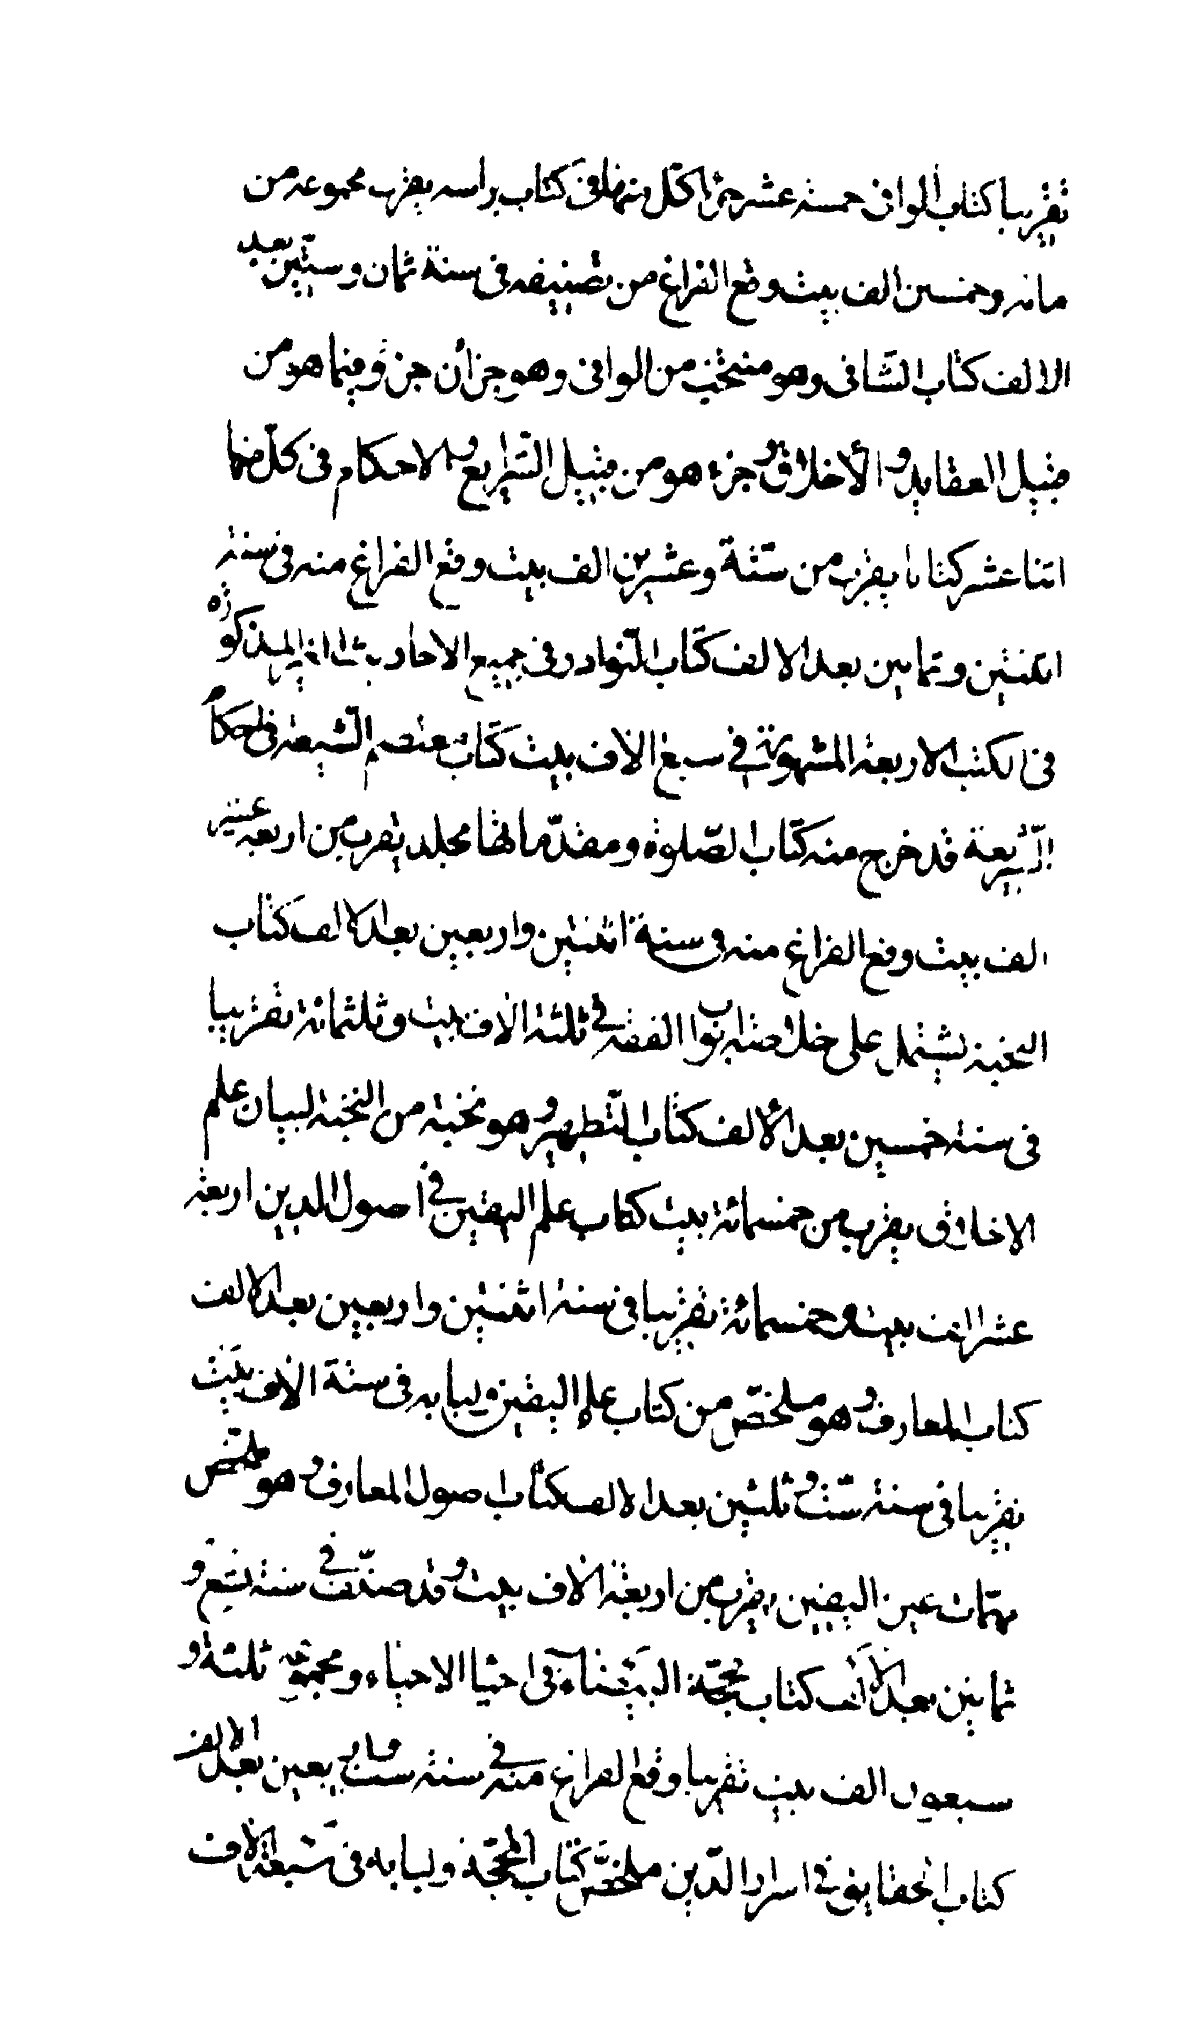 تقريبا كتاب الوافى خمسة عشر جزءا كل منها فى كتاب براسه يقرب مجموعه من
مائه وخمسين الف بيت وقع الفراغ من تصنيفه فى سنة ثمان وستين بعد
الالف كتاب الشافى وهو منتخب من الوافى وهو جزان جزؤ فيما هو من
قبيل العقايد والأخلاق وجزء هو من قبيل الشرايع والاحكام فى كل منهما
اثنا عشر كتابا يقرب من ستة وعشرين الف بيت وقع الفراغ منه فى سنة
اثنتين وثمانين بعد الالف كتاب النوادر فى جميع الاحاديث الغير المذكوره
فى الكتب الاربعة المشهورة فى سبع الاف بيت كتاب معتصم الشيعة فى احكام
الشريعة قد خرج منه كتاب الصلوة ومقدماتها مجلد يقرب من اربعه عشر
الف بيت وقع الفراغ منه فى سنة اثنتين واربعين بعد الالف كتاب
النخبه يشتمل على خلاصة ابواب الفقه فى ثلثة الاف بيت وثلثمائة تقريبا
فى سنة خمسين بعد الألف كتاب التطهير وهو نخبة من النخبة لبيان علم
الاخلاق يقرب من خمسمائة بيت كتاب علم اليقين فى اصول الدين اربعة
عشر الف بيت وخمسمائة تقريبا فى سنة اثنتين واربعين بعد الالف
كتاب المعارف وهو ملخص من كتاب علم اليقين ولبابه فى ستة الاف بيت
تقريبا فى سنة ست وثلثين بعد الالف كتاب اصول المعارف وهو ملخص
مهمات عين اليقين يقرب من اربعة الاف بيت وقد صنف فى سنة تسع و
ثمانين بعد الألف كتاب محجة البيضاء فى احيا الاحياء ومجموعه ثلثة و
سبعون الف بيت تقريبا وقع الفراغ منه فى سنة ست واربعين بعد الالف
كتاب الحقايق فى اسرار الدين ملخص كتاب المحجة ولبابه فى سبعة الاف